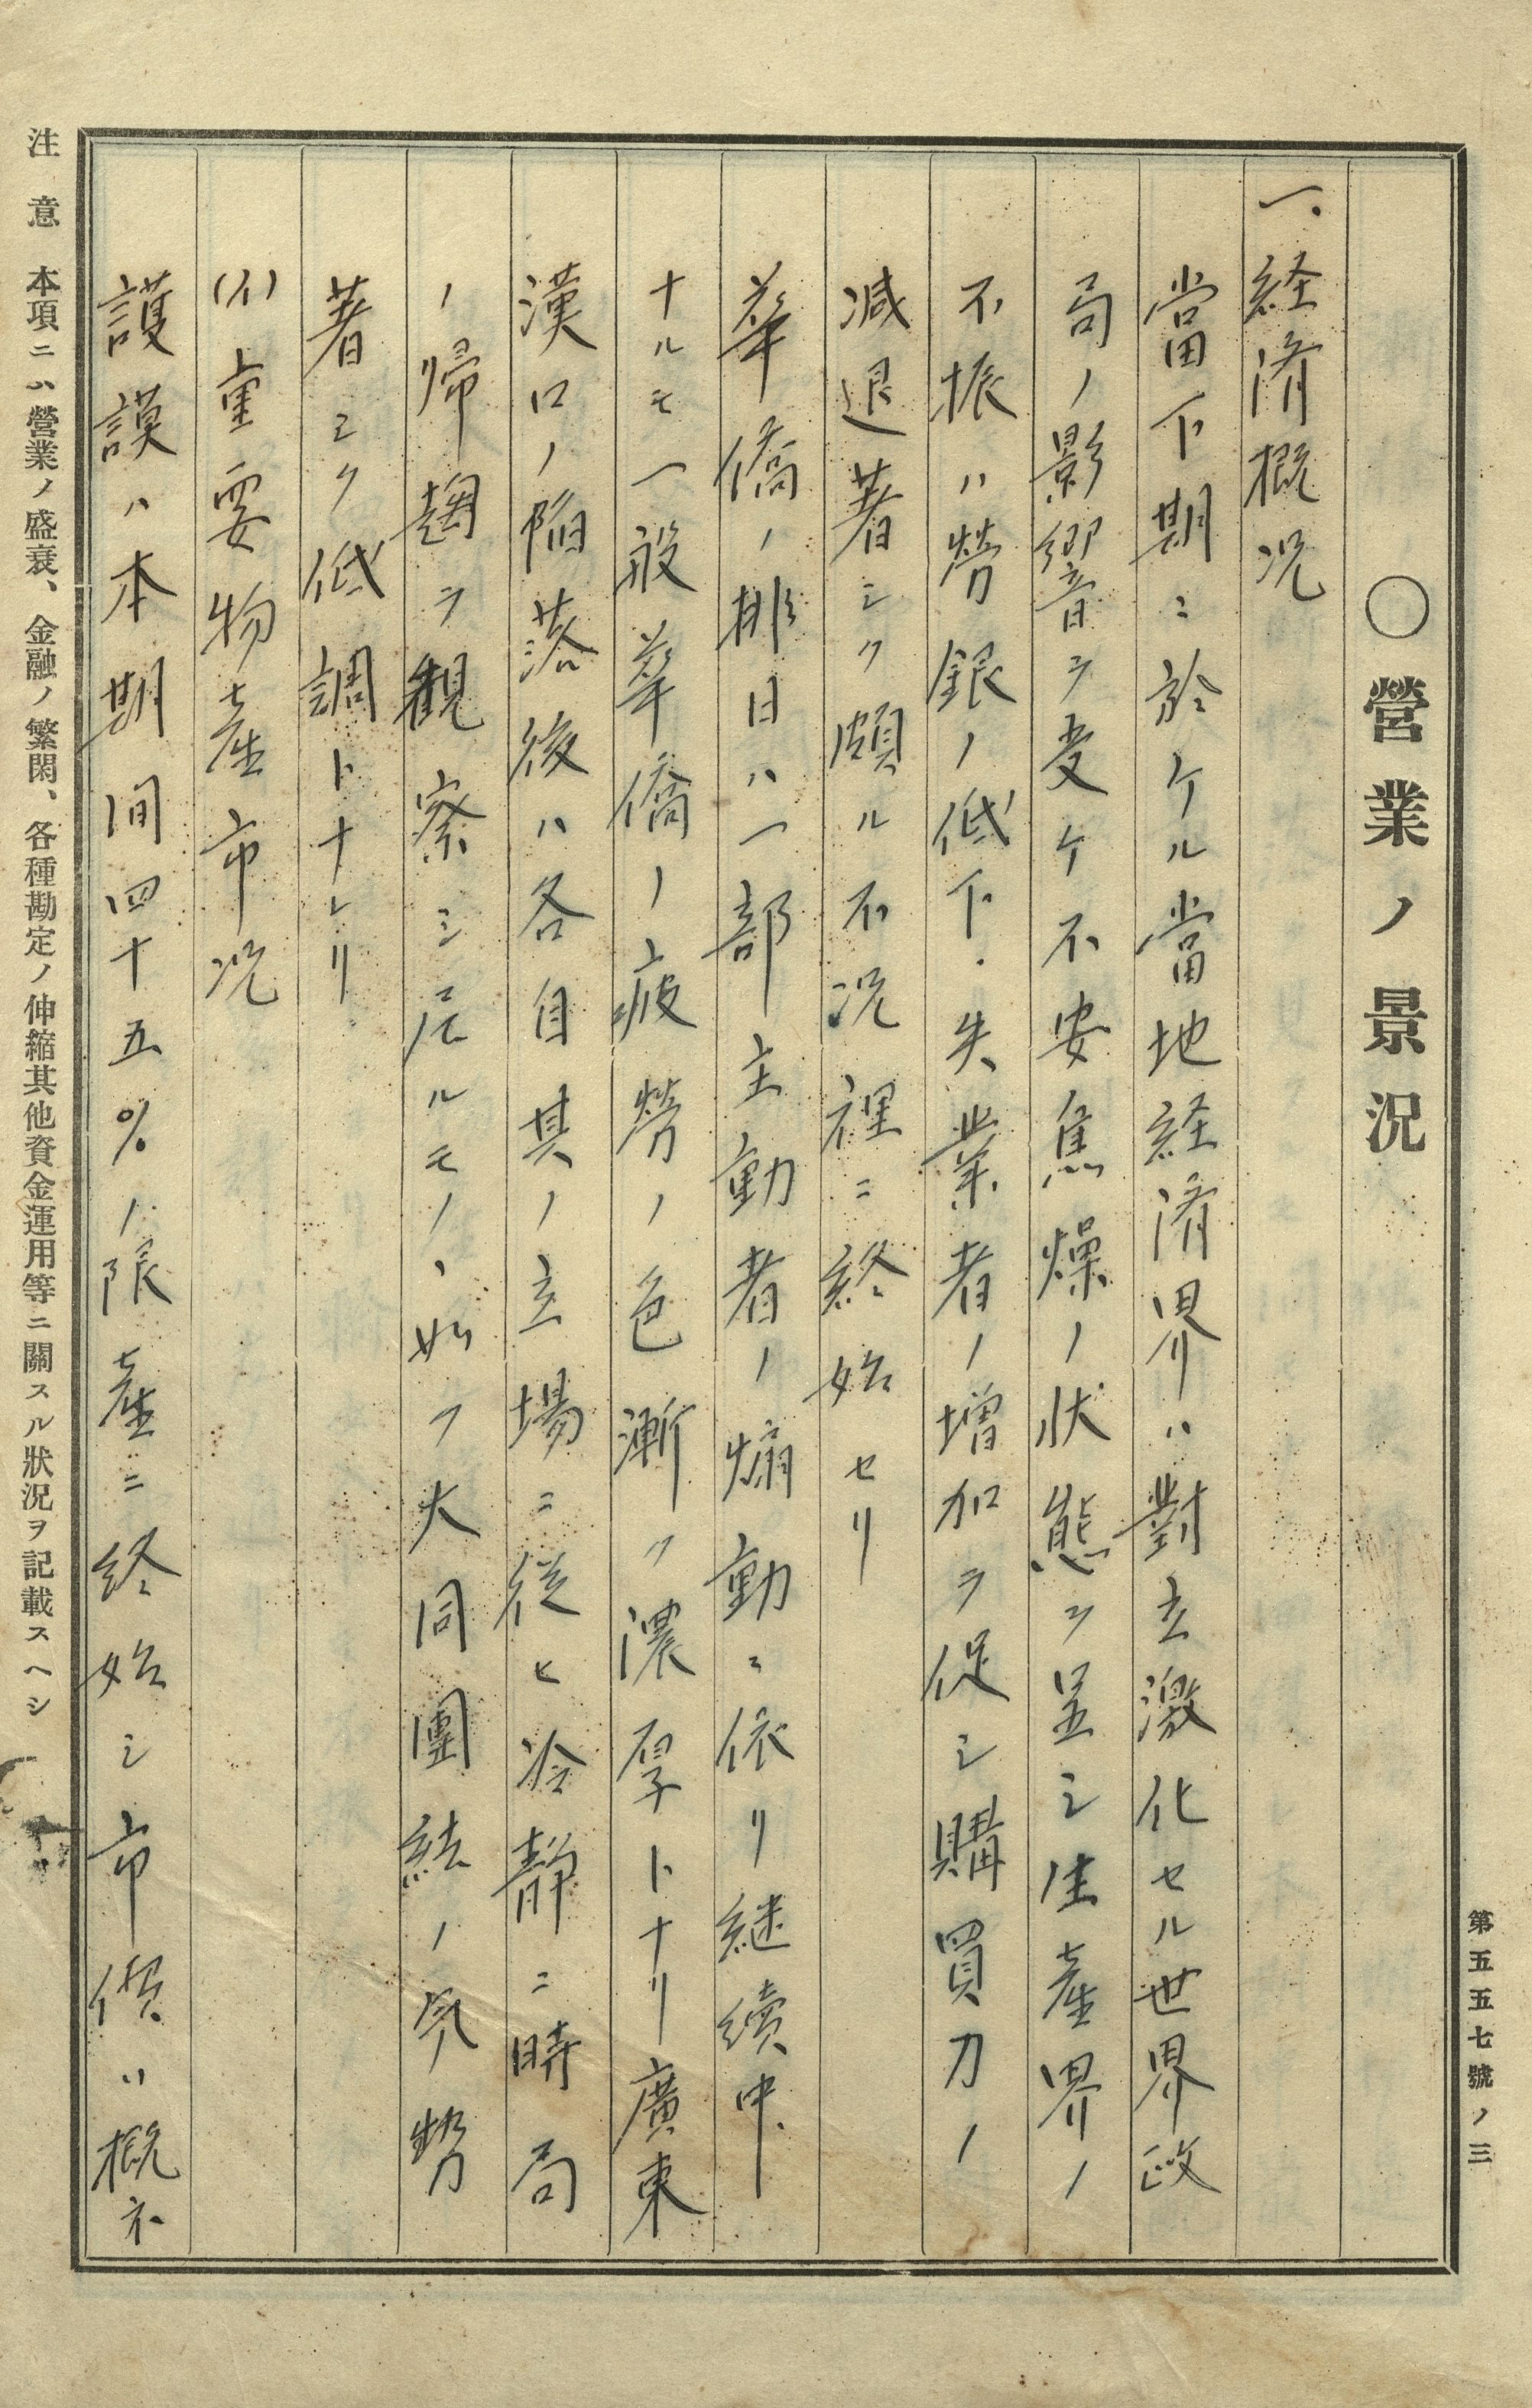 第五五七號ノ三
〇營業ノ景況
一、経済概況
當下期ニ於ケル當地経済界ハ對立激化セル世界政
局ノ影響ヲ受ケ不安焦燥ノ状態ヲ呈シ生産界ノ
不振ハ勞銀ノ低下・失業者ノ増加ヲ促シ購買力ノ
減退著シク頗ル不況裡ニ終始セリ
華僑ノ排日ハ一部主動者ノ煽動ニ依リ継續中
ナルモ一般華僑ノ疲勞ノ色漸ク濃厚トナリ廣東
漢口ノ陥落後ハ各自其ノ立場ニ従ヒ冷静ニ時局
ノ帰趨ヲ観察シ居ルモノヽ如ク大同團結ノ気勢
著シク低調トナレリ
(イ)重要物産市況
護謨ハ本期間四十五%ノ限産ニ終始シ市價ハ概ネ
注意 本項ニハ營業ノ盛衰、金融ノ繁閑、各種勘定ノ伸縮其他資金運用等ニ關スル狀況ヲ記載スヘシ